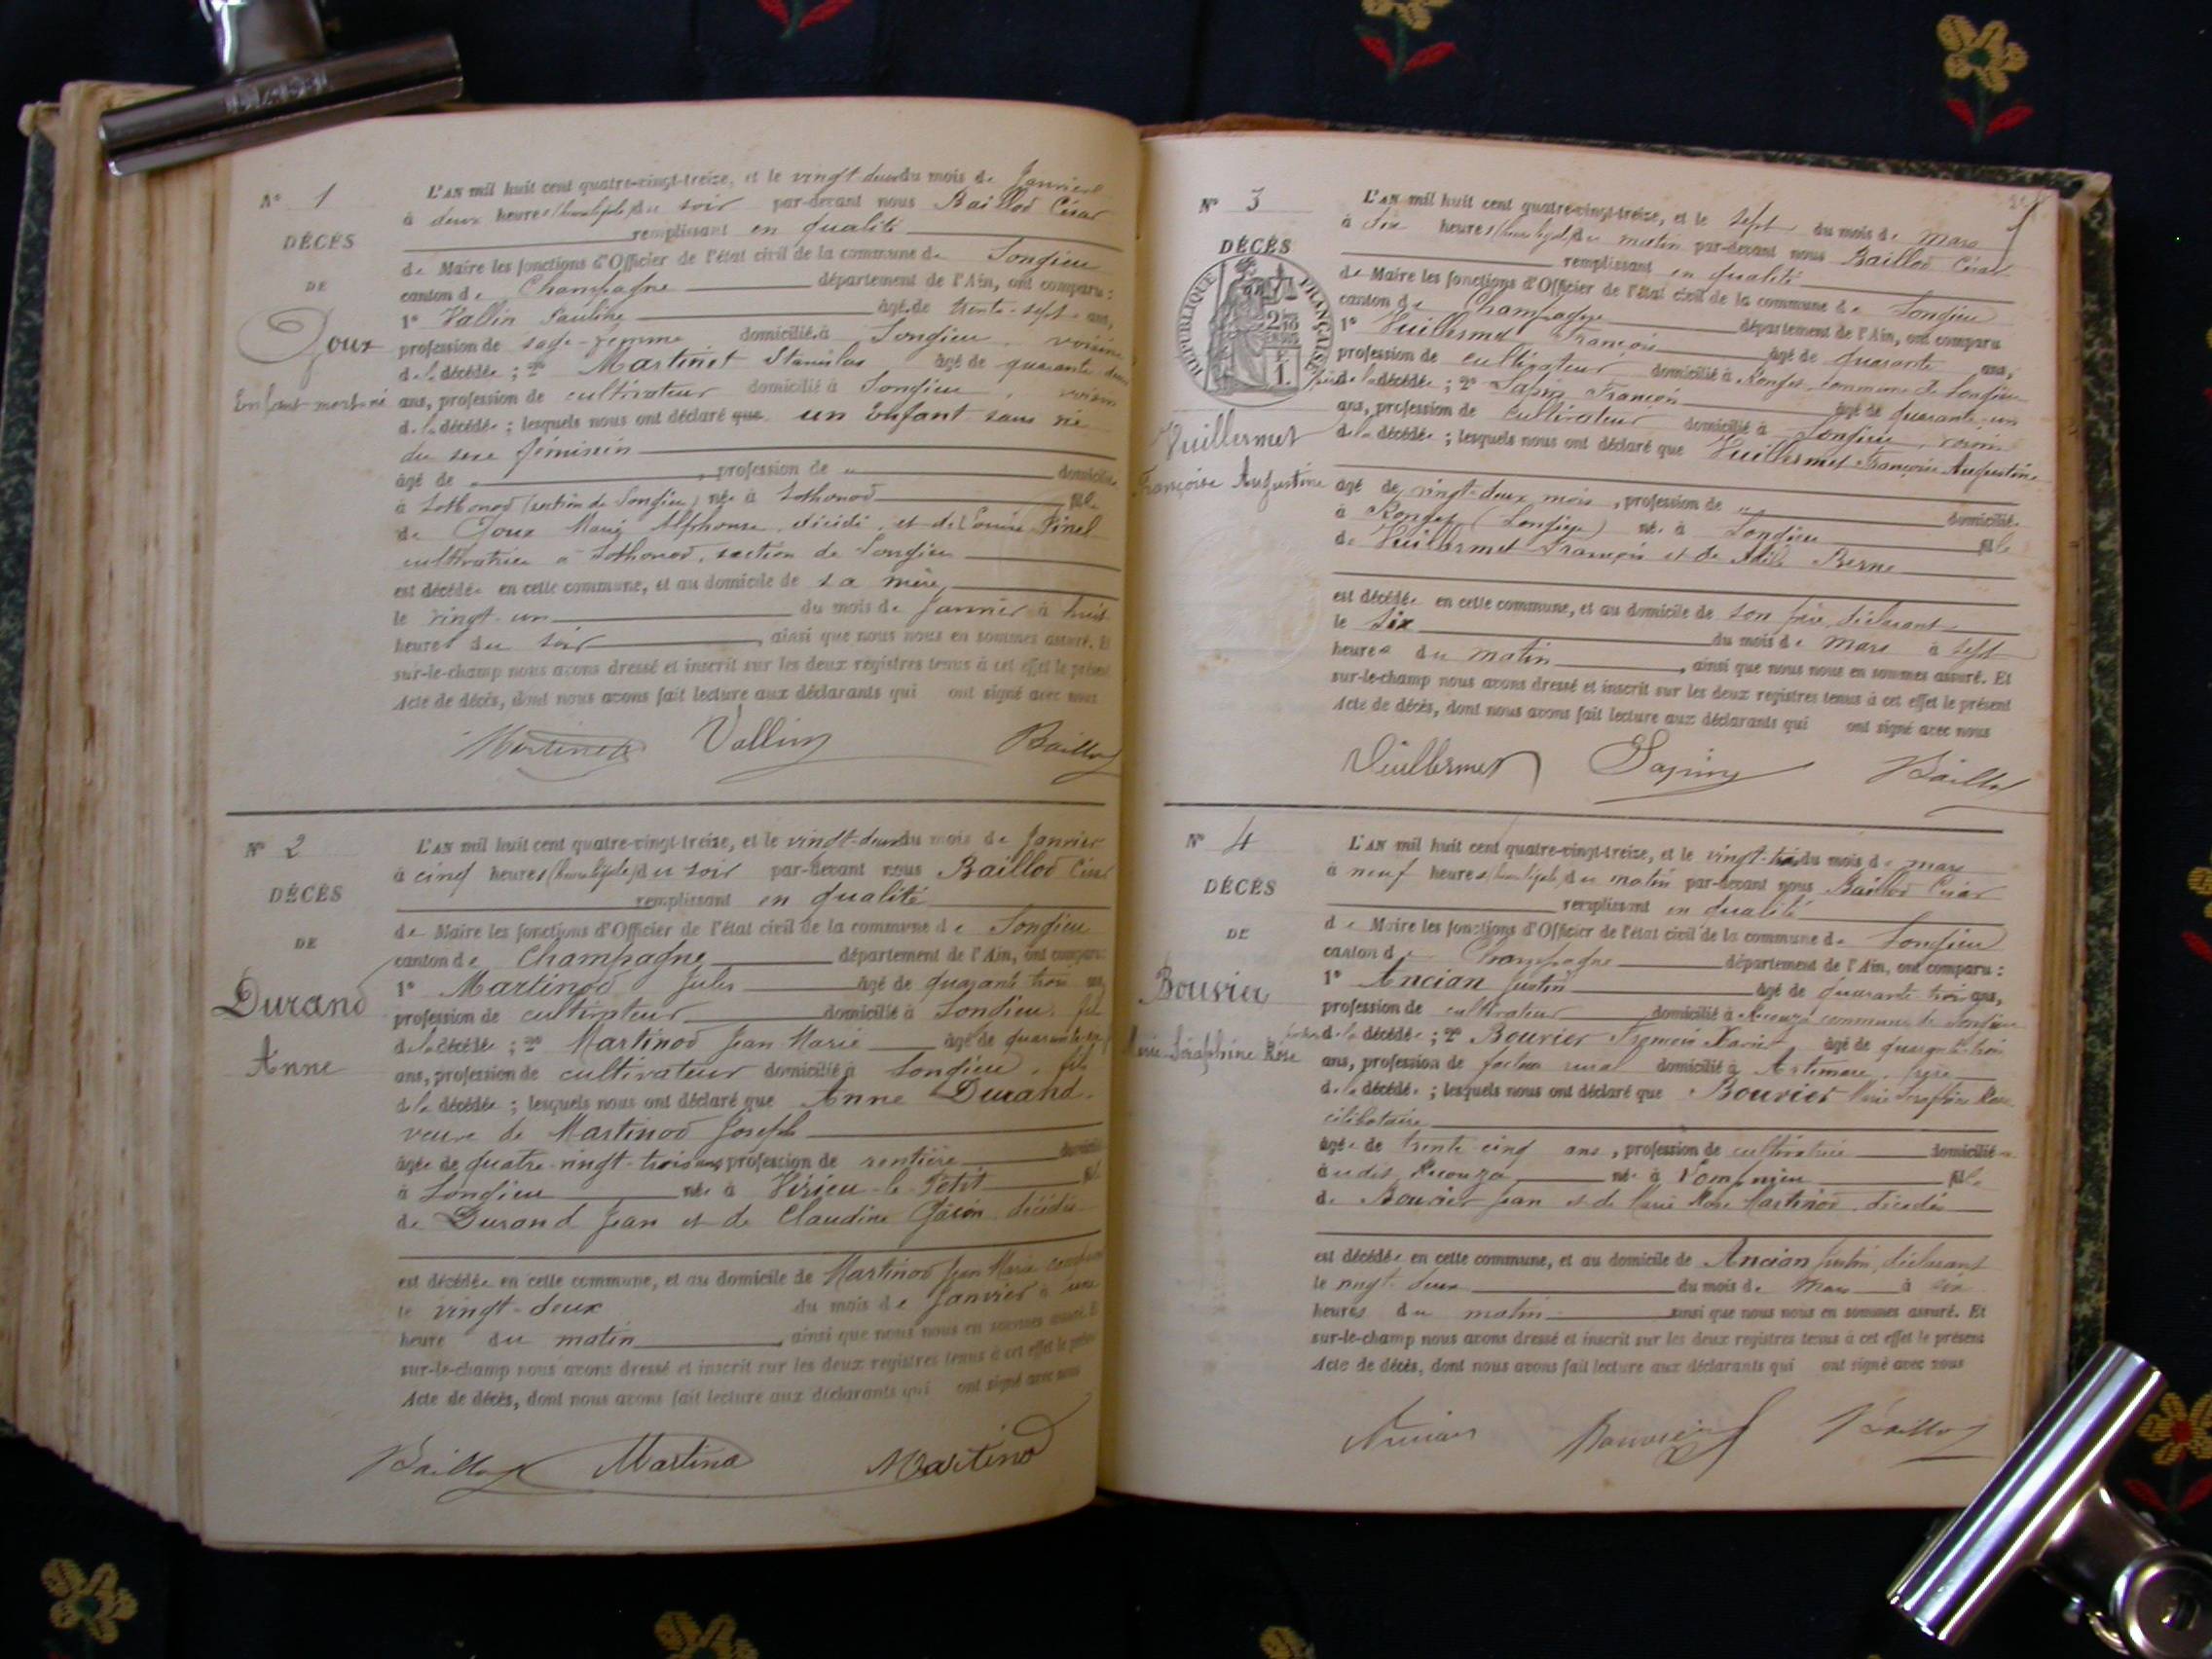 N° 1
DÉCÈS
DE
Joux
Enfant mort-né
L'AN mil huit cent quatre-vingt-treize, et le vingt-deux du mois de Janvier
à deux heures (heure légale) du soir par-devant nous Baillod César
remplissant en qualité
de Maire les fonctions d'Officier de l'état civil de la commune de Songieu
canton de Champagne département de l'Ain, ont comparu :
1° Vallin Pauline âgé de trente-sept ans,
profession de sage-femme domiciliée à Songieu, voisine
de la décédée ; 2° Martinet Stanislas âgé de quarante deux
ans, profession de cultivateur domicilié à Songieu, voisin
de la décédée ; lesquels nous ont déclaré que un Enfant sans vie
du sexe féminin
âgé de , profession de " domicilié
à Sothonod (section de Songieu) née à Sothonod fille
de Joux Marie Alphonse, décédé, et de Louise Pinel
cultivatrice à Sothonod, section de Songieu
est décédée en cette commune, et au domicile de sa mère,
le vingt-un du mois de Janvier à huit
heures du soir , ainsi que nous nous en sommes assuré. Et
sur-le-champ nous avons dressé et inscrit sur les deux registres tenus à cet effet le présent
Acte de décès, dont nous avons fait lecture aux déclarants qui ont signé avec nous
Martinet Vallin Baillod
N° 2
DÉCÈS
DE
Durand
Anne
L'AN mil huit cent quatre-vingt-treize, et le vingt-deux du mois de Janvier
à cinq heures (heure légale) du soir par-devant nous Baillod César
remplissant en qualité
de Maire les fonctions d'Officier de l'état civil de la commune de Songieu
canton de Champagne département de l'Ain, ont comparu :
1° Martinod Jules âgé de quarante trois ans,
profession de cultivateur domicilié à Songieu, fils
de la décédée ; 2° Martinod Jean Marie âgé de
ans, profession de cultivateur domicilié à Songieu, fils
de la décédée ; lesquels nous ont déclaré que Anne Durand,
veuve de Martinod Joseph
âgée de quatre-vingt-trois ans, profession de rentière domicilié
à Songieu née à Virieu-le-Petit fille
de Durand Jean et de Claudine décédés
est décédée en cette commune, et au domicile de Martinod Jean Marie
le vingt-deux du mois de Janvier à une
heure du matin , ainsi que nous nous en sommes assuré. Et
sur-le-champ nous avons dressé et inscrit sur les deux registres tenus à cet effet le présent
Acte de décès, dont nous avons fait lecture aux déclarants qui ont signé avec nous
Baillod Martinod Martinod
N° 3
DÉCÈS
RÉPUBLIQUE FRANÇAISE
Vuillermet
Françoise Augustine
L'AN mil huit cent quatre-vingt-treize, et le sept du mois de Mars
à six heures (heure légale) du matin par-devant nous Baillod César
remplissant en qualité
de Maire les fonctions d'Officier de l'état civil de la commune de Songieu
canton de Champagne département de l'Ain, ont comparu
1° Vuillermet François âgé de quarante ans,
profession de cultivateur domicilié à commune de Songieu
père de la décédée ; 2° François âgé de quarante-un
ans, profession de cultivateur domicilié à Songieu, voisin
de la décédée ; lesquels nous ont déclaré que Vuillermet Françoise Augustine
âgé de vingt-deux mois , profession de " domicilié
à (Songieu) née à Songieu fille
de Vuillermet François et de Adèle Berne
est décédée en cette commune, et au domicile de son père, déclarant
le six du mois de Mars à sept
heures du matin , ainsi que nous nous en sommes assuré. Et
sur-le-champ nous avons dressé et inscrit sur les deux registres tenus à cet effet le présent
Acte de décès, dont nous avons fait lecture aux déclarants qui ont signé avec nous
Vuillermet Baillod
N° 4
DÉCÈS
DE
Bouvier
Marie Séraphine Rose
L'AN mil huit cent quatre-vingt-treize, et le vingt-trois du mois de mars
à neuf heures (heure légale) du matin par-devant nous Baillod César
remplissant en qualité
de Maire les fonctions d'Officier de l'état civil de la commune de Songieu
canton de Champagne département de l'Ain, ont comparu :
1° Ancian Justin âgé de quarante trois ans,
profession de cultivateur domicilié à commune de Songieu
de la décédée ; 2° Bouvier Xavier âgé de quarante trois
ans, profession de facteur rural domicilié à Artemare, frère
de la décédée ; lesquels nous ont déclaré que Bouvier Marie Séraphine Rose
célibataire
âgée de trente cinq ans, profession de cultivatrice domiciliée
à née à fille
de Bouvier Jean et de Marie Rose Martinod, décédés
est décédée en cette commune, et au domicile de Ancian Justin, déclarant
le vingt-deux du mois de Mars à six
heures du matin ainsi que nous nous en sommes assuré. Et
sur-le-champ nous avons dressé et inscrit sur les deux registres tenus à cet effet le présent
Acte de décès, dont nous avons fait lecture aux déclarants qui ont signé avec nous
Ancian Bouvier Baillod